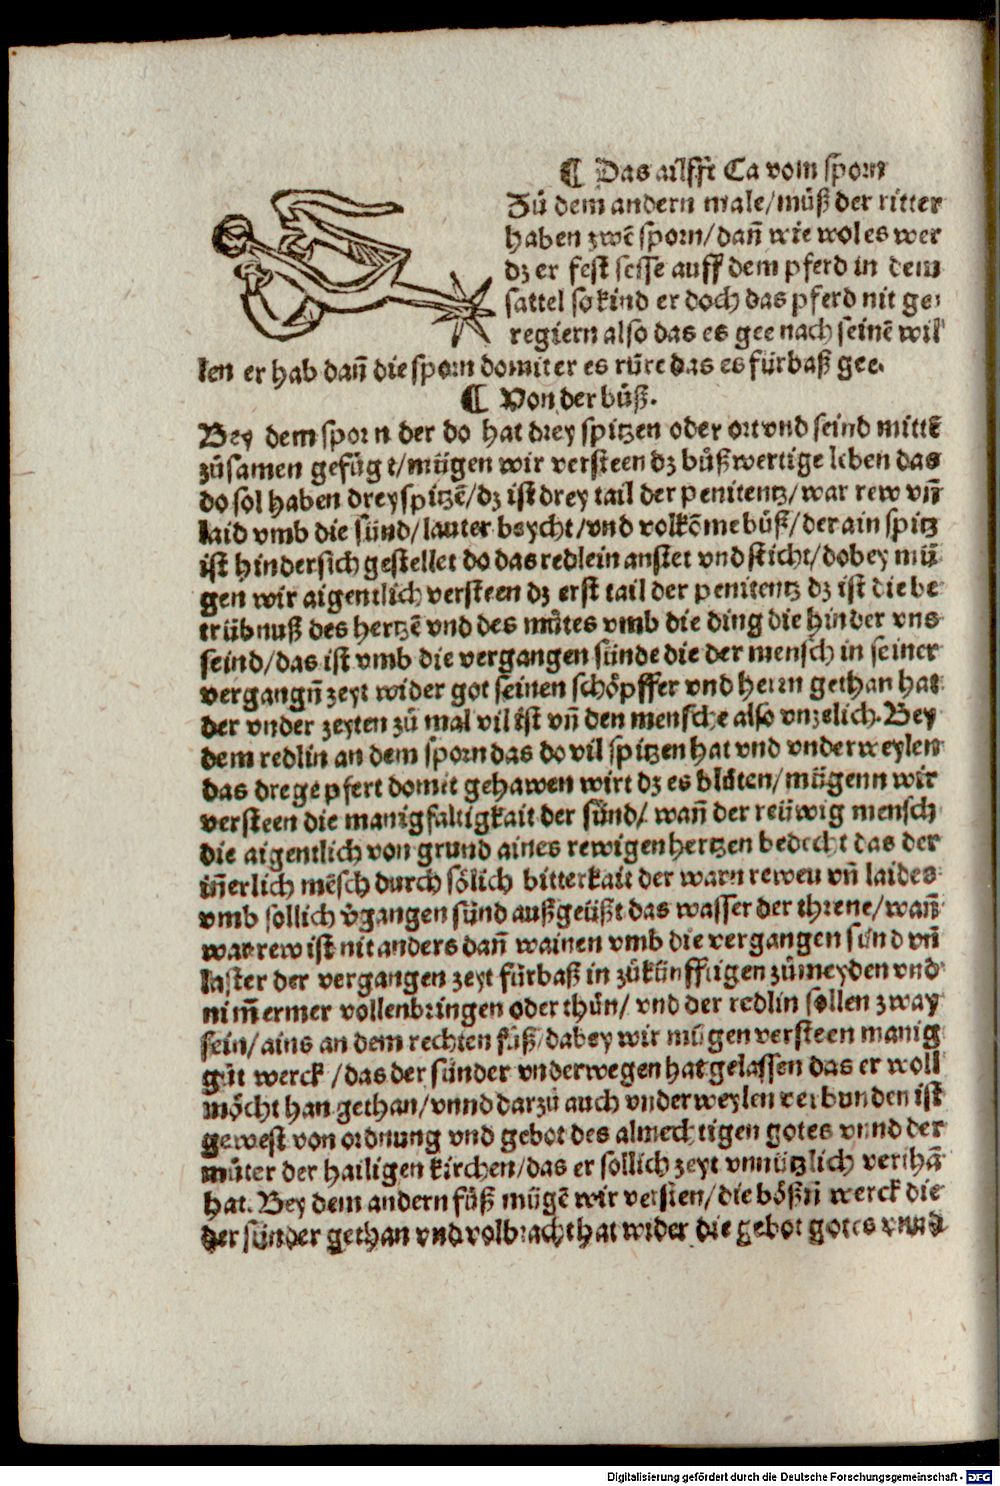 ¶ Das ailfft Ca vom sporn
Zů dem andern male/můß der ritter
haben zwē sporn/dañ wie wol es wer
dz er fest sesse auff dem pferd in dem
sattel so kind er doch das pferd nit ge⸗
regiern also das es gee nach seinē wil
len er hab dañ die sporn domit er es rüre das es fürbaß gee.
¶ Von der bůß.
Bey dem sporn der do hat drey spitzen oder ort vnd seind mittē
zůsamen gefügt/mügen wir versteen dz bůßwertige leben das
do sol haben drey spitzē/dz ist drey tail der penitentz/war rew vñ
laid vmb die sünd/lauter beycht/vnd volkōme bůß/der ain spitz
ist hindersich gestellet do das redlein anstet vnd sticht/dobey mü
gen wir aigentlich versteen dz erst tail der penitentz dz ist die be
trübnuß des hertzē vnd des můtes vmb die ding die hinder vns
seind/das ist vmb die vergangen sünde die der mensch in seiner
vergangñ zeyt wider got seinen schöpffer vnd herrn gethan hat
der vnder zeyten zů mal vil ist vñ den mensche also vnzelich. Bey
dem redlin an dem sporn das do vil spitzen hat vnd vnderweylen
das drege pfert domit gehawen wirt dz es blůten/mügenn wir
versteen die manigfaltigkait der sünd/ wañ der reüwig mensch
die aigentlich von grund aines rewigen hertzen bedecht das der
iñerlich mēsch durch sölich bitterkait der warn rewen vñ laides
vmb sollich v̄gangen sünd außgeüßt das wasser der threne/wañ
war rew ist nit anders dañ wainen vmb die vergangen sünd vñ
laster der vergangen zeyt fürbaß in zůkünfftigen zůmeyden vnd
nim̄ermer vollenbringen oder thůn/ vnd der redlin sollen zway
sein/ains an dem rechten fůß/dabey wir mügen versteen manig
gůt werck/das der sünder vnderwegen hat gelassen das er woll
möcht han gethan/vnnd darzů auch vnderweylen verbunden ist
gewest von ordnung vnd gebot des almechtigen gotes vnnd der
můter der hailigen kirchen/das er sollich zeyt vnnützlich verthā
hat. Bey dem andern fůß mügē wir versten/die bößñ werck die
der sünder gethan vnd volbracht hat wider die gebot gottes vnnd
Digitalisierung gefördert durch die Deutsche Forschungsgemeinschaft - DFG